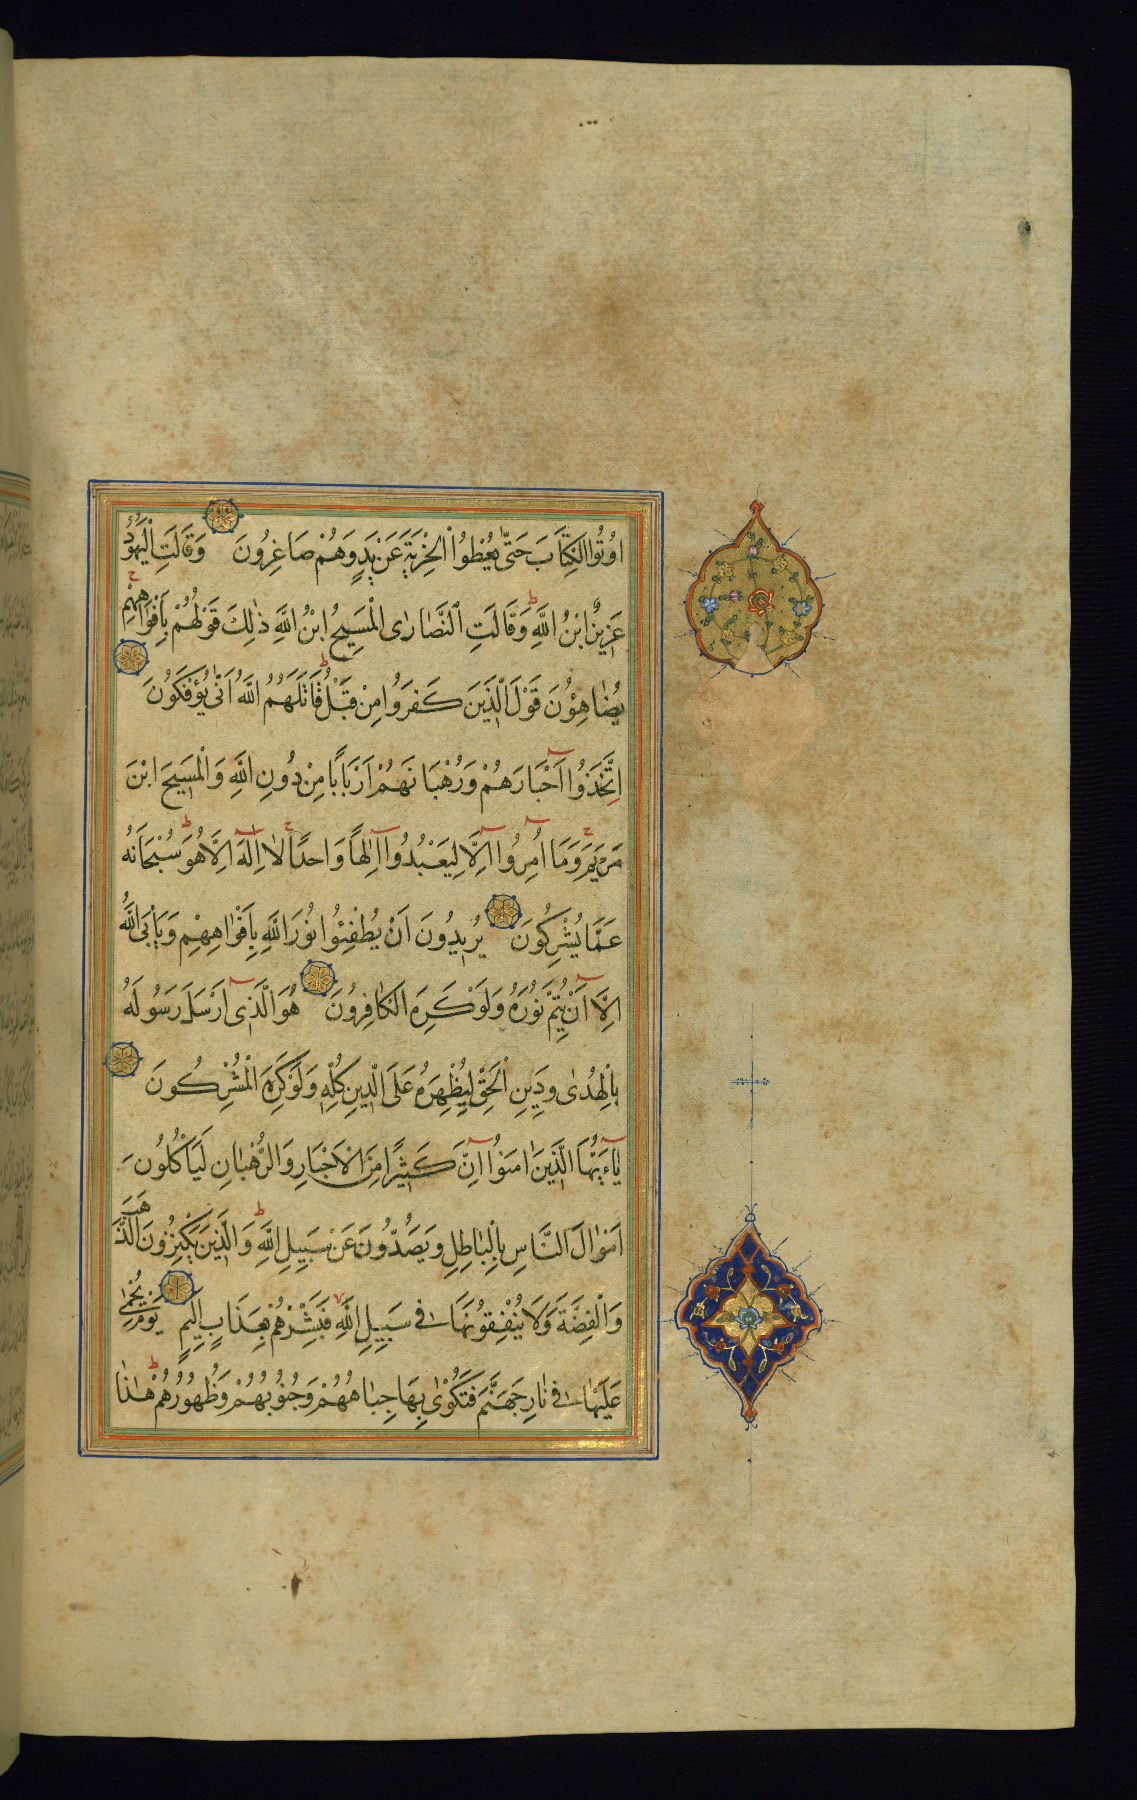 اُوتُوا الْكِتَابَ حَتّٰى يُعْطُوا الْجِزْيَةَ عَنْ يَدٍ وَهُمْ صَاغِرُونَ وَقَالَتِ الْيَهُودُ
عُزَيْرٌ ابْنُ اللّٰهِ ط وَقَالَتِ النَّصَارٰى الْمَسِيحُ ابْنُ اللّٰهِ ذٰلِكَ قَوْلُهُمْ بِاَفْوَاهِهِمْ ج
يُضَاهِؤُنَ قَوْلَ الَّذِينَ كَفَرُوا مِنْ قَبْلُ ط قَاتَلَهُمُ اللّٰهُ اَنّٰى يُؤْفَكُونَ
اِتَّخَذُوا اَحْبَارَهُمْ وَرُهْبَانَهُمْ اَرْبَابًا مِنْ دُونِ اللّٰهِ وَالْمَسِيحَ ابْنَ
مَرْيَمَ ج وَمَا اُمِرُوا اِلَّا لِيَعْبُدُوا اِلٰهًا وَاحِدًا ج لَا اِلٰهَ اِلَّا هُوَ ط سُبْحَانَهُ
عَمَّا يُشْرِكُونَ يُرِيدُونَ اَنْ يُطْفِئُوا نُورَ اللّٰهِ بِاَفْوَاهِهِمْ وَيَاْبَى اللّٰهُ
اِلَّا اَنْ يُتِمَّ نُورَهُ وَلَوْ كَرِهَ الْكَافِرُونَ هُوَ الَّذِى اَرْسَلَ رَسُولَهُ
بِالْهُدٰى وَدِينِ الْحَقِّ لِيُظْهِرَهُ عَلَى الدِّينِ كُلِّهِ وَلَوْ كَرِهَ الْمُشْرِكُونَ
يَاءَيُّهَا الَّذِينَ اٰمَنُوا اِنَّ كَثِيرًا مِنَ الْاَحْبَارِ وَالرُّهْبَانِ لَيَاْكُلُونَ
اَمْوَالَ النَّاسِ بِالْبَاطِلِ وَيَصُدُّونَ عَنْ سَبِيلِ اللّٰهِ ط وَالَّذِينَ يَكْنِزُونَ الذَّهَبَ
وَالْفِضَّةَ وَلَا يُنْفِقُونَهَا فِى سَبِيلِ اللّٰهِ لا فَبَشِّرْهُمْ بِعَذَابٍ اَلِيمٍ يَوْمَ يُحْمٰى
عَلَيْهَا فِى نَارِ جَهَنَّمَ فَتُكْوٰى بِهَا جِبَاهُهُمْ وَجُنُوبُهُمْ وَظُهُورُهُمْ ط هٰذَا